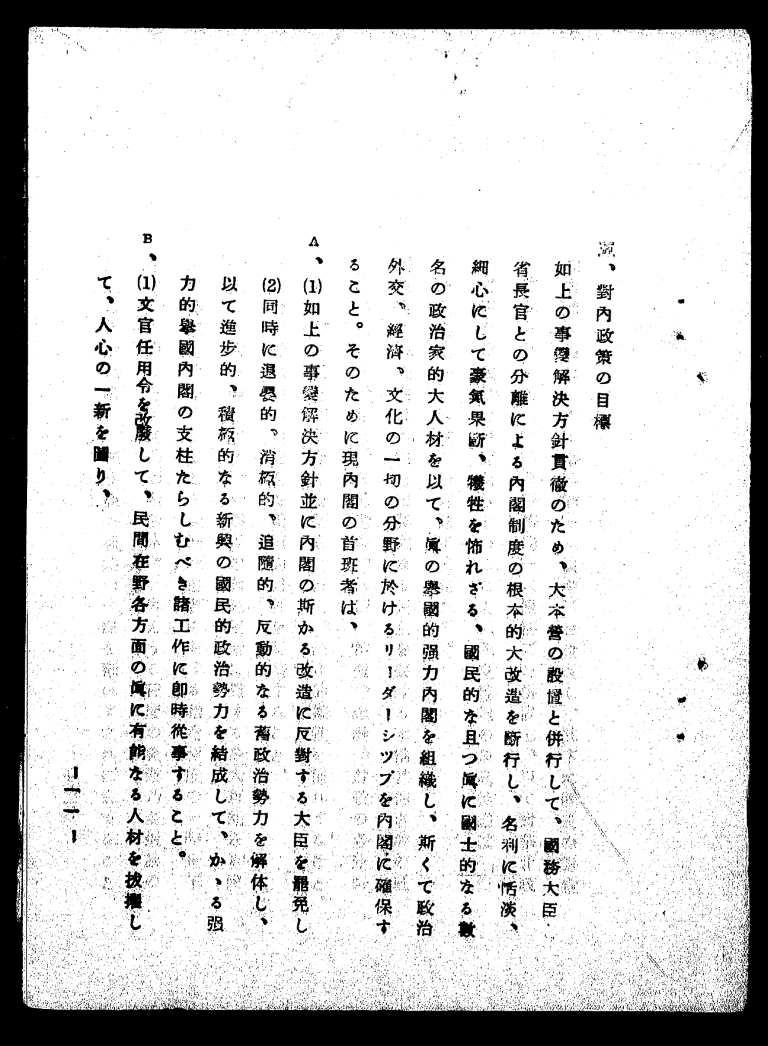 、對內政策の目標
如上の事變解決方針貫徹のため、大本營の設置と併行して、國務大臣、
省長官との分離による內閣制度の根本的大改造を斷行し、名利に恬淡、
細心にして豪氣果斷、犧牲を怖れざる、國民的な且つ眞に國士的なる數
名の政治家的大人材を以て、眞の擧國的强力內閣を組織し、斯くて政治
外交、經濟、文化の一切の分野に於けるリーダーシツプを內閣に確保す
ること。そのために現內閣の首班者は、
A、(1)如上の事變解決方針並に內閣の斯かる改造に反對する大臣を罷免し
(2)同時に退嬰的、消極的、追隨的、反動的なる舊政治勢力を解体し、
以て進步的、積極的なる新興の國民的政治勢力を結成して、かゝる强
力的擧國內閣の支柱たらしむべき諸工作に卽時從事すること。
B、(1)文官任用令を改廢して、民間在野各方面の眞に有能なる人材を拔擢し
て、人心の一新を圖り、
ー一一ー